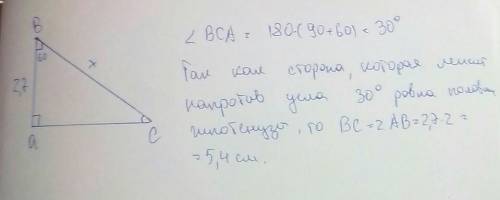 B
60
x
2,7
A
C
∠ BCA = 180-(90+60) = 30°
Так как сторона, которая лежит
напротив угла 30° равна половин
гипотенузы, то BC = 2 AB = 2,7·2 =
= 5,4 см.